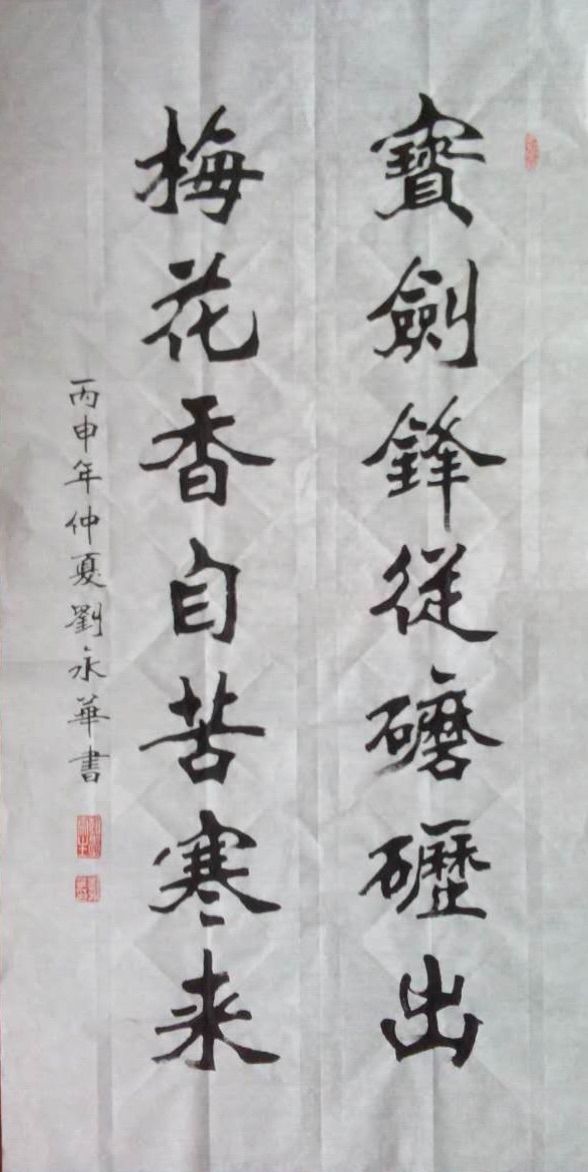 寶劍鋒從磨礪出
梅花香自苦寒来
丙申年仲夏劉永華書